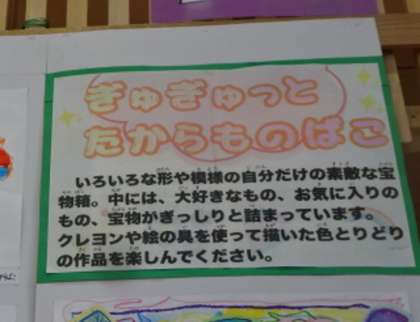 ぎゅぎゅっと
たからものばこ
いろいろな形や模様の自分だけの素敵な宝
物箱。中には、大好きなもの、お気に入りの
もの、宝物がぎっしりと詰まっています。
クレヨンや絵の具を使って描いた色とりどり
の作品を楽しんでください。